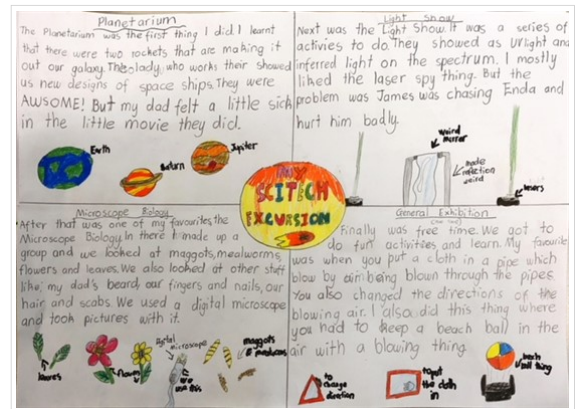 Planetarium
The Planetarium was the first thing I did. I learnt
that there were two rockets that are making it
out our galaxy. The lady who works their showed
us new designs of space ships. They were
AWSOME! But my dad felt a little sick
in the little movie they did.
Earth
Saturn
Jupiter
Light Show
Next was the Light Show. It was a series of
activies to do. They showed as UV light and
inferred light on the spectrum. I mostly
liked the laser spy thing. But the
problem was James was chasing Enda and
hurt him badly.
weird
mirror
made
reflection
weird
lasers
MY
SCITECH
EXCURSION
Microscope Biology
After that was one of my favourites, the
Microscope Biology. In there I made up a
group and we looked at maggots, mealworms,
flowers and leaves. We also looked at other stuff
like, my dad's beard, our fingers and nails, our
hair and scabs. We used a digital microscope
and took pictures with it.
leaves
flowers
digital
microscope
we
use this
maggots
General Exhibition
Finally was free time. We got to
do fun activities and learn. My favourite
was when you put a cloth in a pipe which
blow by air being blown through the pipes.
You also changed the directions of the
blowing air. I also did this thing where
you had to keep a beach ball in the
air with a blowing thing.
to
change
direction
to put
the cloth
in
beach
ball thing